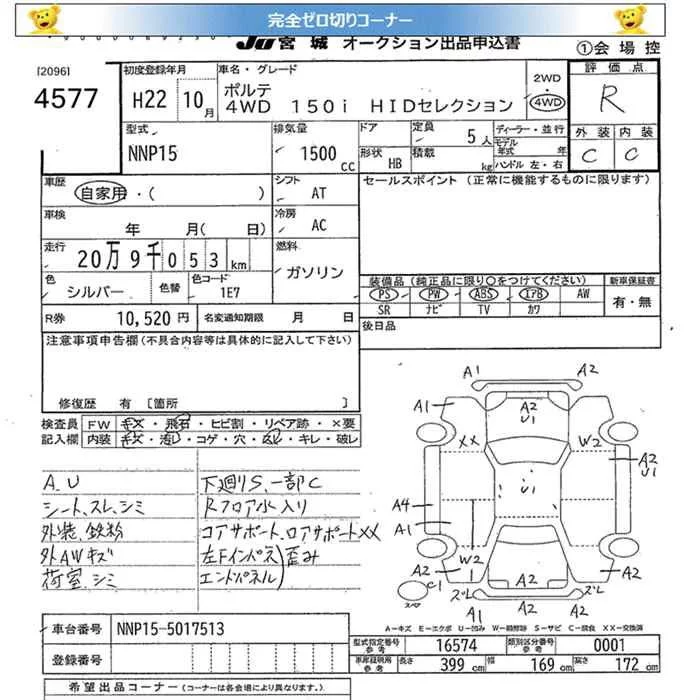 完全ゼロ切りコーナー
JU宮城 オークション出品申込書
①会場控
[2096]
4577
初度登録年月
H22 10月
車名・グレード
ポルテ
4WD 150i HIDセレクション
2WD
・
4WD
評価点
R
外装 内装
C C
型式
NNP15
排気量
1500 CC
ドア
形状 HB
定員 5人
積載 kg
ディーラー・並行
モデル年式 年
ハンドル 左・右
車歴
自家用・( )
シフト
AT
セールスポイント (正常に機能するものに限ります)
車検
年 月( 日)
冷房
AC
走行
20万9千053km
燃料
ガソリン
色
シルバー
色替
色コード
1E7
装備品 (純正品に限り○をつけてください)
新車保証書
PS PW ABS エアB AW
SR ナビ TV カワ
有・無
R券 10,520円
名変通知期限 月 日
後日品
注意事項申告欄 (不具合内容等は具体的に記入して下さい)
修復歴 有 [箇所 ]
検査員記入欄
FW キズ・飛石・ヒビ割・リペア跡・×要
内装 キズ・汚レ・コゲ・穴・スレ・キレ・破レ
A.U
シート、スレ、シミ
外装、鉄粉
外AWキズ
荷室、シミ
下廻りS、一部C
Rフロア水入り
コアサポート、ロアサポートXX
左Fインパネ)歪み
エンドパネル)
A1 A2
A1 A2 U1 A2
XX W2
A2 U1
U1
A4
A1
W2 1
A2 C1
A2 A2
A2
スペア
ズレ ズレ
A1 A2 A2
A=キズ E=エクボ U=凹み W=補修跡 S=サビ C=腐食 XX=交換済
車台番号 NNP15-5017513
登録番号
型式指定番号 参考 16574
類別区分番号 参考 0001
車庫証明用 参考 長さ 399cm 幅 169cm 高さ 172cm
希望出品コーナー (コーナーは各会場により異なります。)